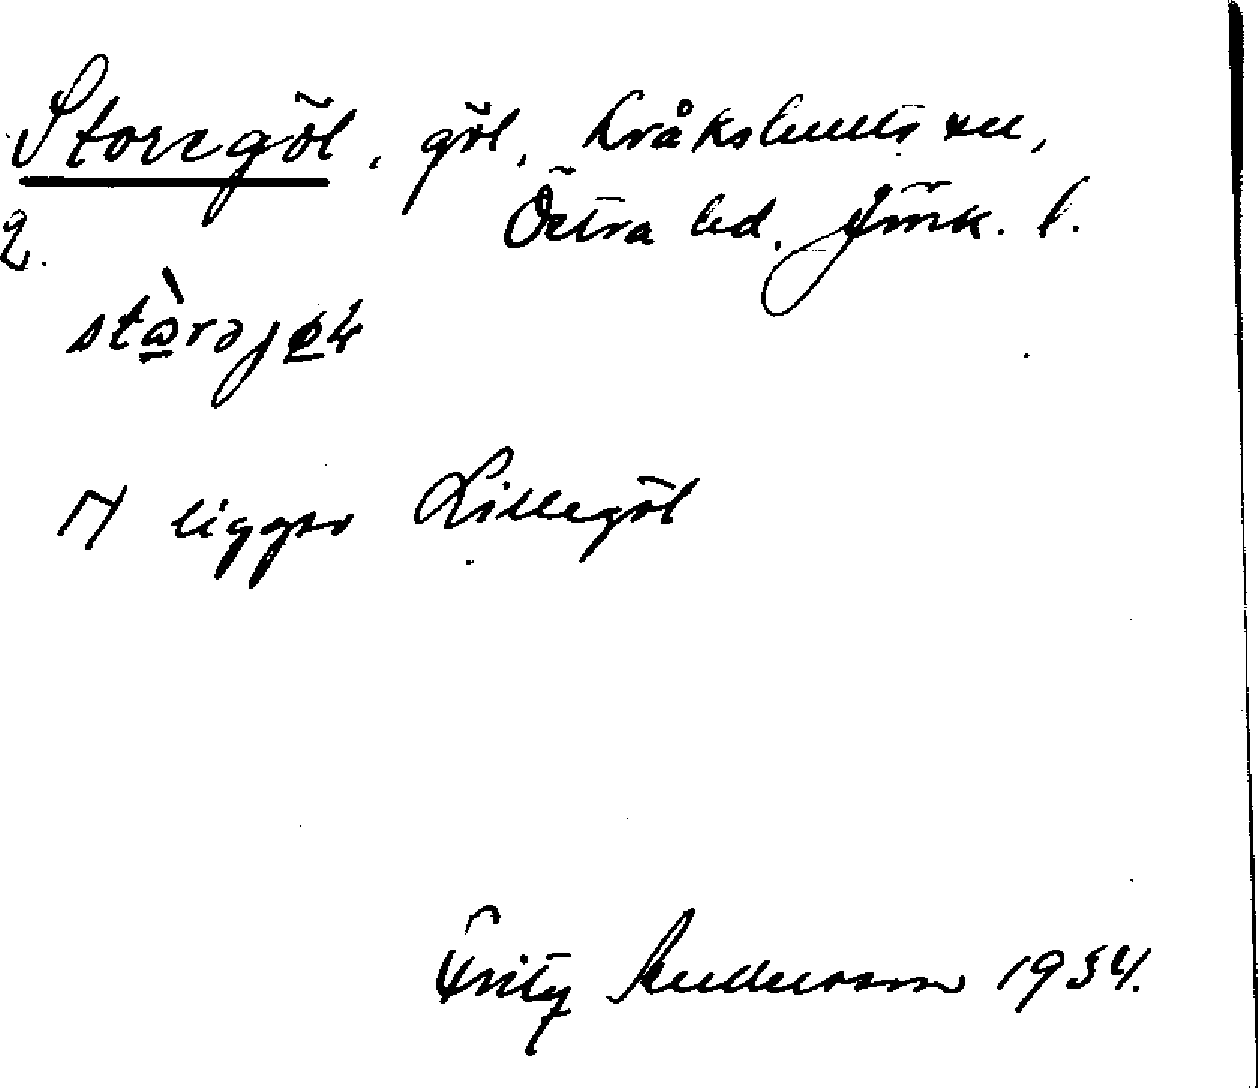 Storegöl, göl, Kråkshults sn,
2. Östra hd. Jönk. l.
stὼrəjøɫ
Y ligger Lillegöl
Fritz Andersson 1934.